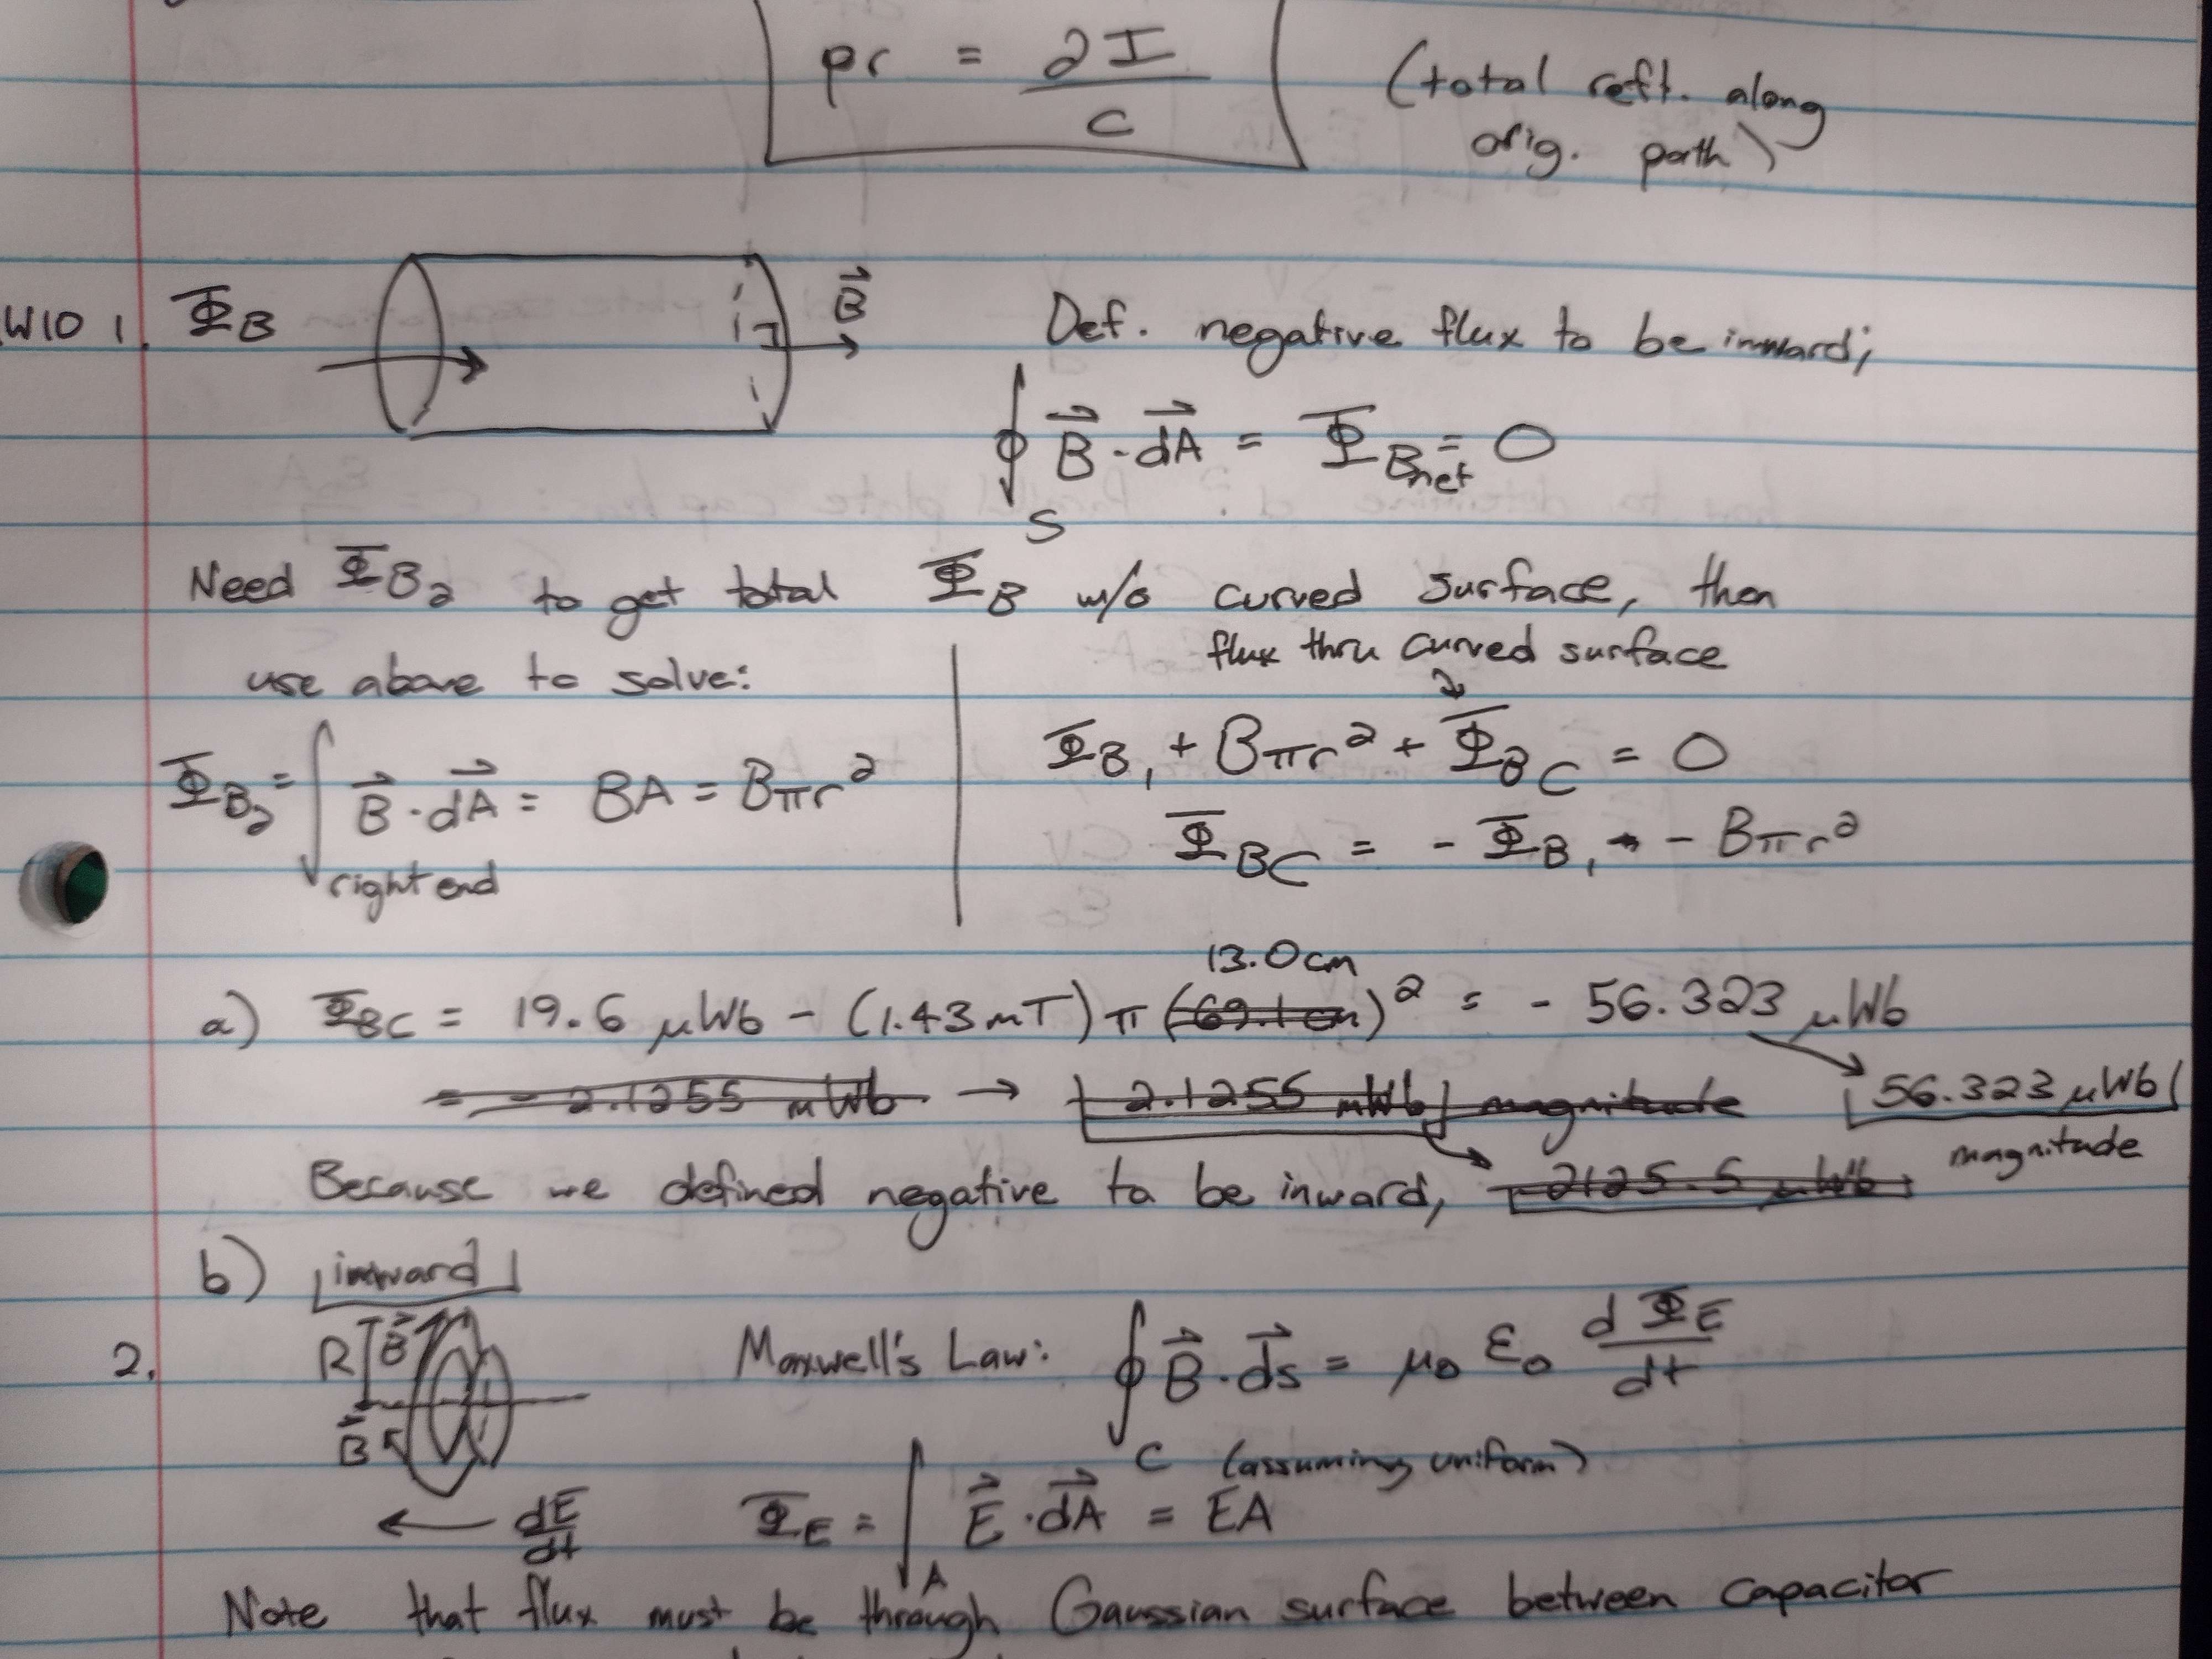 pr = 2I/c (total reft. along
orig. path)
W10 1. Φ_B B⃗ Def. negative flux to be inward;
∮_S B⃗ · dA⃗ = Φ_Bnet = 0
Need Φ_B2 to get total Φ_B w/o curved surface, then
use above to solve: flux thru curved surface
Φ_B2 = ∫_right end B⃗ · dA⃗ = BA = Bπr²
Φ_B1 + Bπr² + Φ_BC = 0
Φ_BC = - Φ_B1 - Bπr²
13.0cm
a) Φ_BC = 19.6 μWb - (1.43mT) π (69.1 cm)² = - 56.323 μWb
= - 2.1255 mWb → 2.1255 mWb magnitude 56.323 μWb
magnitude
Because we defined negative to be inward, 2125.5 μWb
b) inward
2. R B⃗ Maxwell's Law: ∮_C B⃗ · ds⃗ = μ₀ ε₀ dΦ_E/dt
B⃗ (assuming uniform)
← dE/dt Φ_E = ∫_A E⃗ · dA⃗ = EA
Note that flux must be through Gaussian surface between capacitor